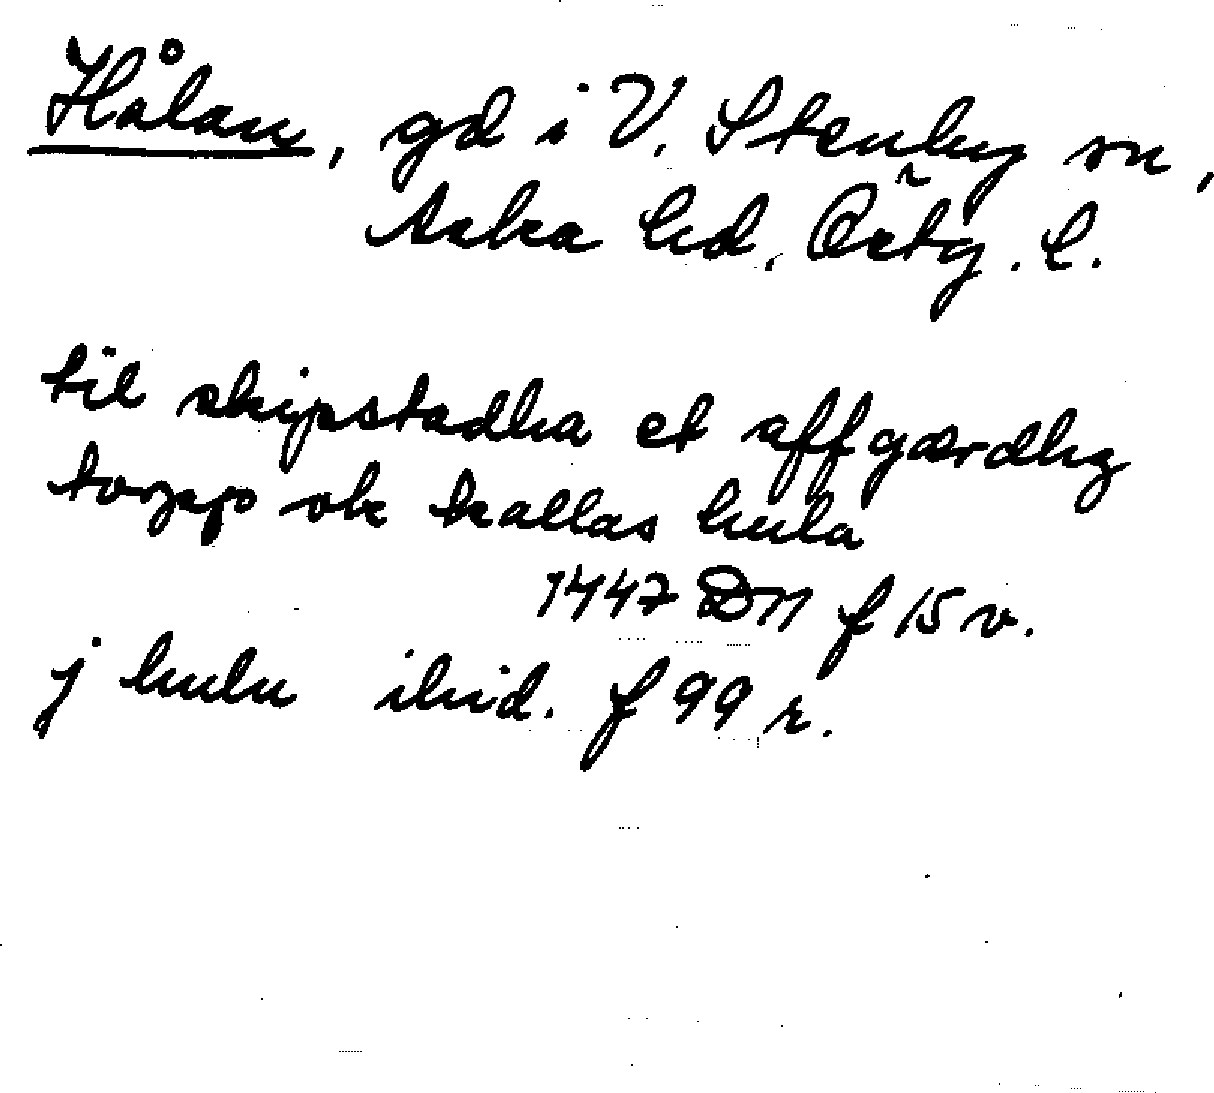 Hålan, gd i V. Stenby sn,
Aska hd. Östg. l.
til skipstadha et aff gærdhz
torpp ok kallas hula
1447 DN f 15 v.
j hulu ibid. f 99 r.